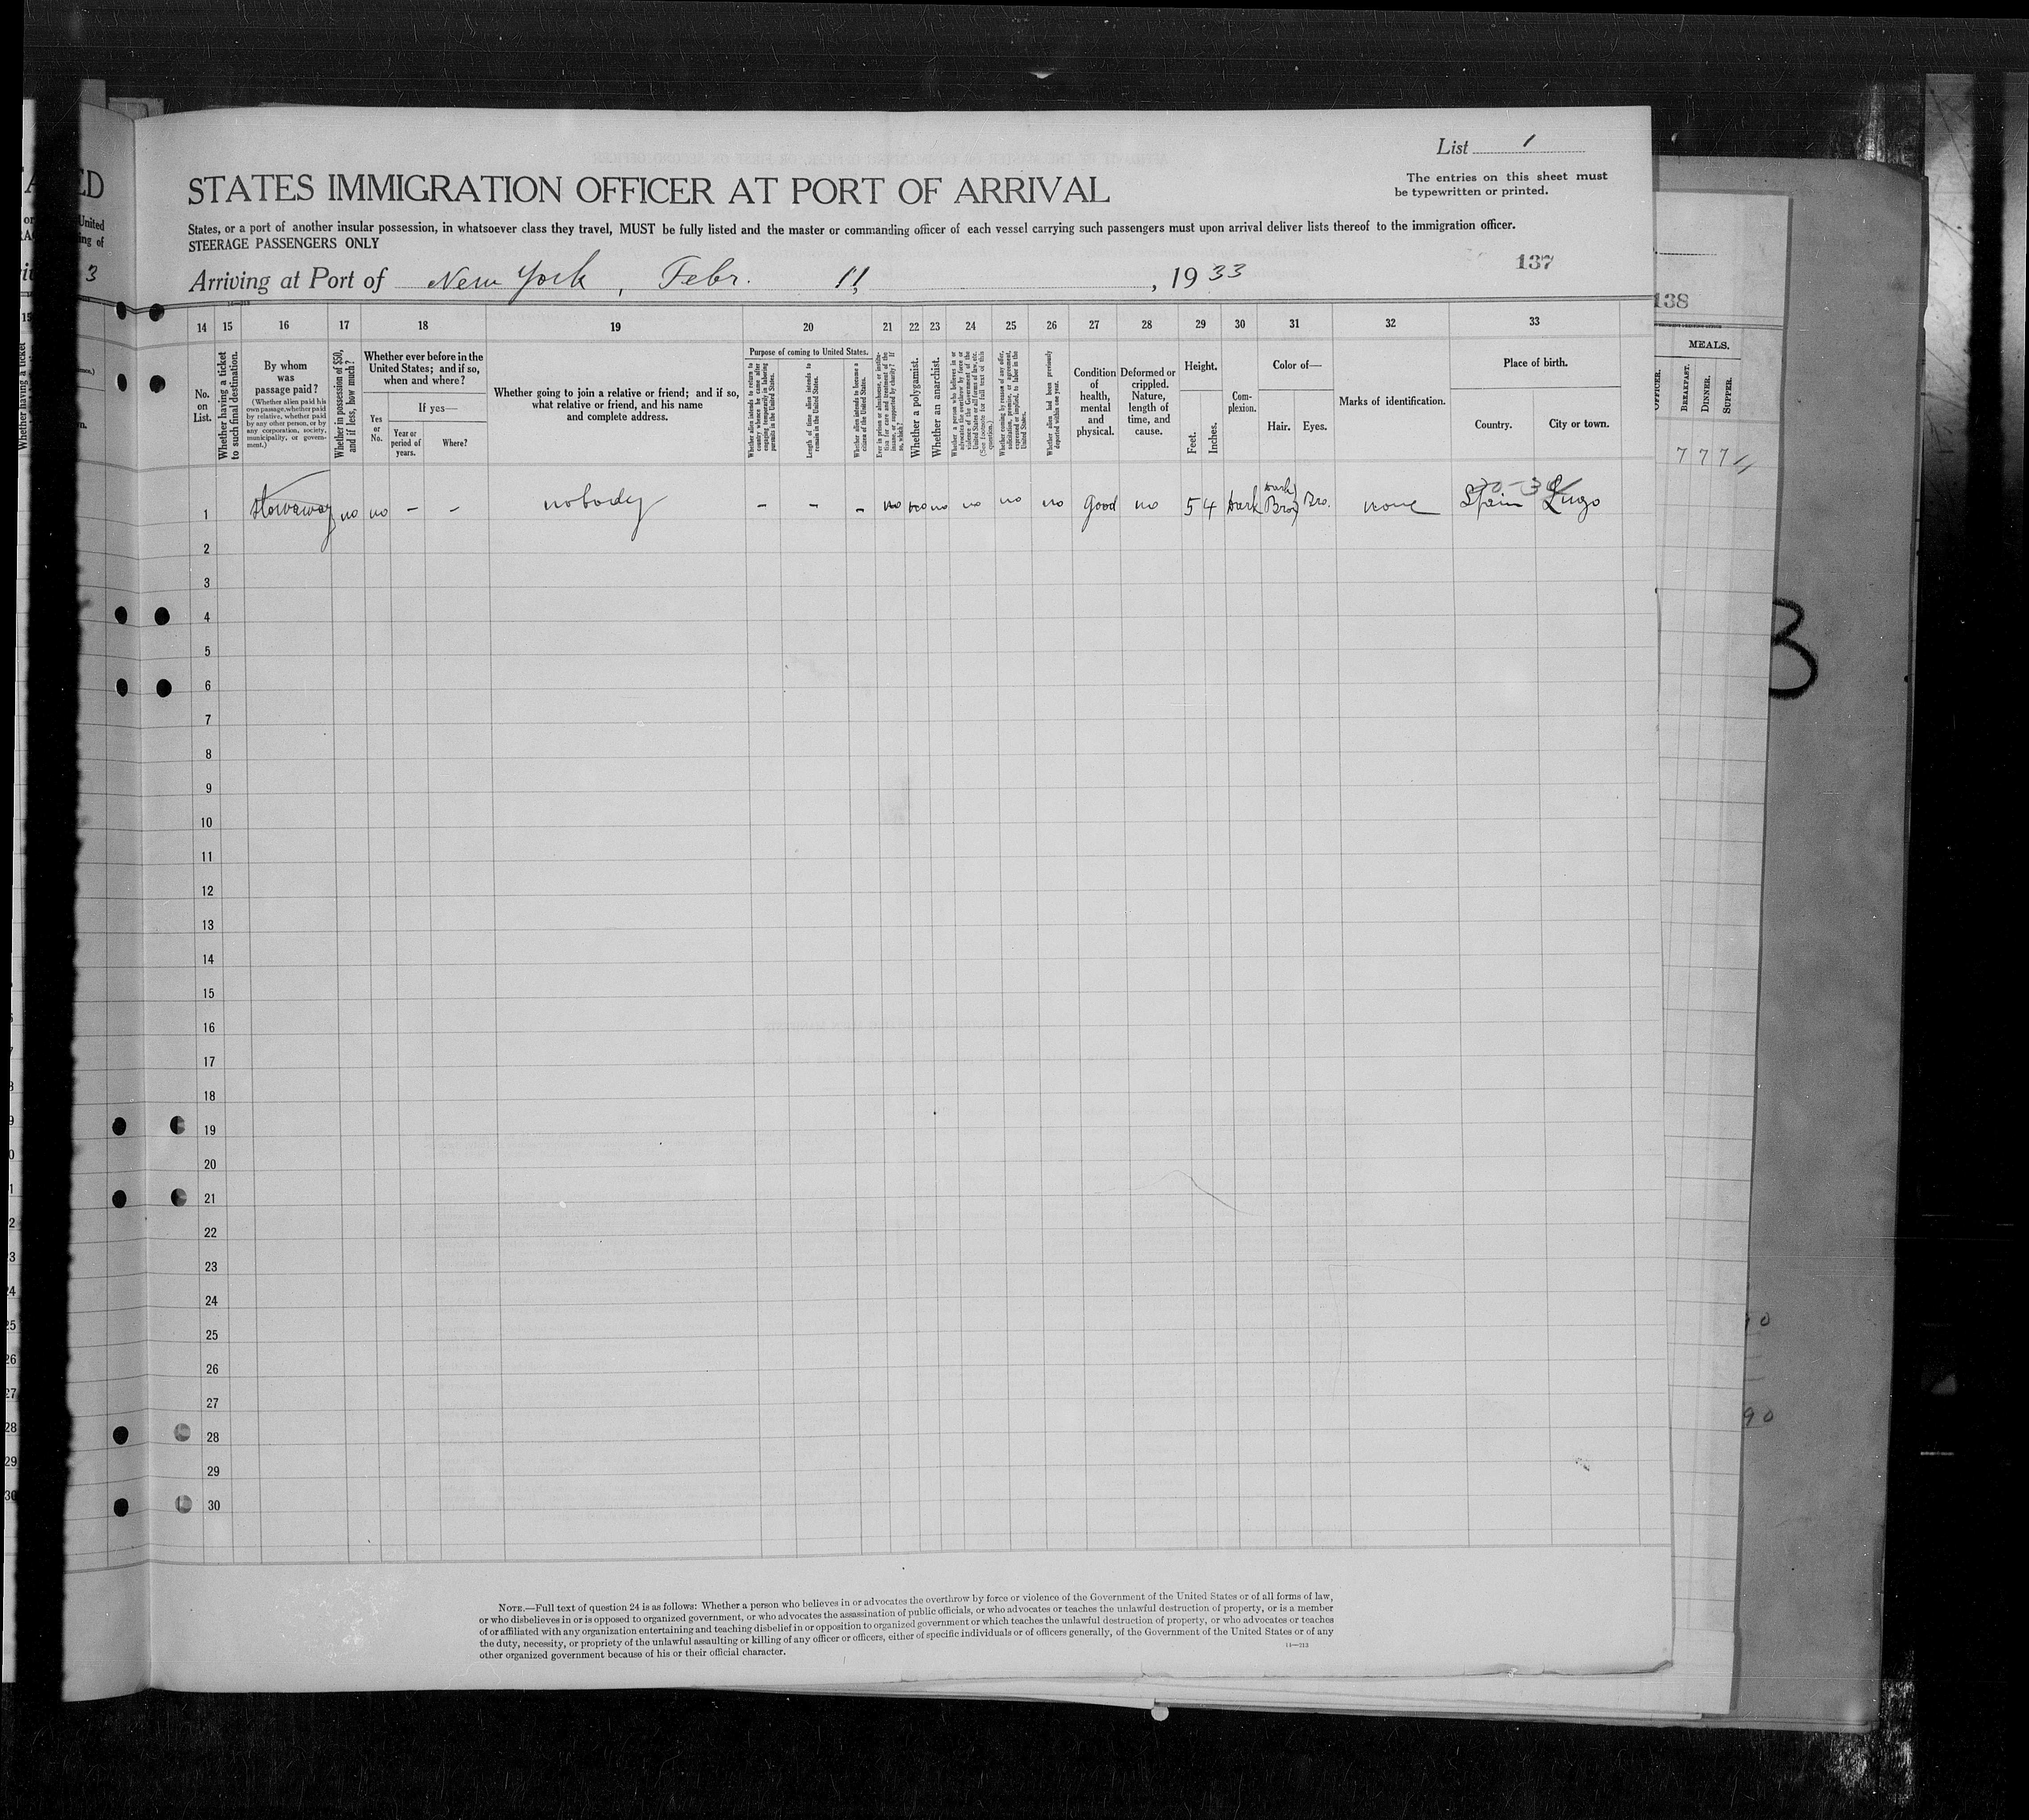 List 1
The entries on this sheet must
be typewritten or printed.
STATES IMMIGRATION OFFICER AT PORT OF ARRIVAL
States, or a port of another insular possession, in whatsoever class they travel, MUST be fully listed and the master or commanding officer of each vessel carrying such passengers must upon arrival deliver lists thereof to the immigration officer.
STEERAGE PASSENGERS ONLY
137
Arriving at Port of New York, Febr. 11, 1933
138
14 15 16 17 18 19 20 21 22 23 24 25 26 27 28 29 30 31 32 33
No.
on
List.
Whether having a ticket
to such final destination.
By whom
was
passage paid?
(Whether alien paid his
own passage, whether paid
by relative, whether paid
by any other person, or by
any corporation, society,
municipality, or govern-
ment.)
Whether in possession of $50,
and if less, how much?
Whether ever before in the
United States; and if so,
when and where?
Yes
or
No.
If yes—
Year or
period of
years.
Where?
Whether going to join a relative or friend; and if so,
what relative or friend, and his name
and complete address.
Purpose of coming to United States.
Whether alien intends to return to
country whence he came after
engaging temporarily in laboring
pursuits in the United States.
Length of time alien intends to
remain in the United States.
Whether alien intends to become a
citizen of the United States.
Ever in prison or almshouse, or institu-
tion for care and treatment of the
insane, or supported by charity? If
so, which?
Whether a polygamist.
Whether an anarchist.
Whether a person who believes in or
advocates the overthrow by force or
violence of the Government of the
United States or all forms of law, etc.
(See footnote for full text of this
question.)
Whether coming by reason of any offer,
solicitation, promise, or agreement,
expressed or implied, to labor in the
United States.
Whether alien had been previously
deported within one year.
Condition
of
health,
mental
and
physical.
Deformed or
crippled.
Nature,
length of
time, and
cause.
Height.
Feet.
Inches.
Com-
plexion.
Color of—
Hair.
Eyes.
Marks of identification.
Place of birth.
Country.
City or town.
MEALS.
OFFICER.
BREAKFAST.
DINNER.
SUPPER.
7 7 7
1 stowaway no no - - nobody - - - no no no no no no good no 5 4 dark dark Bro. none Spain Lugo
2
3
4
5
6
7
8
9
10
11
12
13
14
15
16
17
18
19
20
21
22
23
24
25
26
27
28
29
30
NOTE.—Full text of question 24 is as follows: Whether a person who believes in or advocates the overthrow by force or violence of the Government of the United States or of all forms of law,
or who disbelieves in or is opposed to organized government, or who advocates the assassination of public officials, or who advocates or teaches the unlawful destruction of property, or is a member
of or affiliated with any organization entertaining and teaching disbelief in or opposition to organized government or which teaches the unlawful destruction of property, or who advocates or teaches
the duty, necessity, or propriety of the unlawful assaulting or killing of any officer or officers, either of specific individuals or of officers generally, of the Government of the United States or of any
other organized government because of his or their official character.
14—213